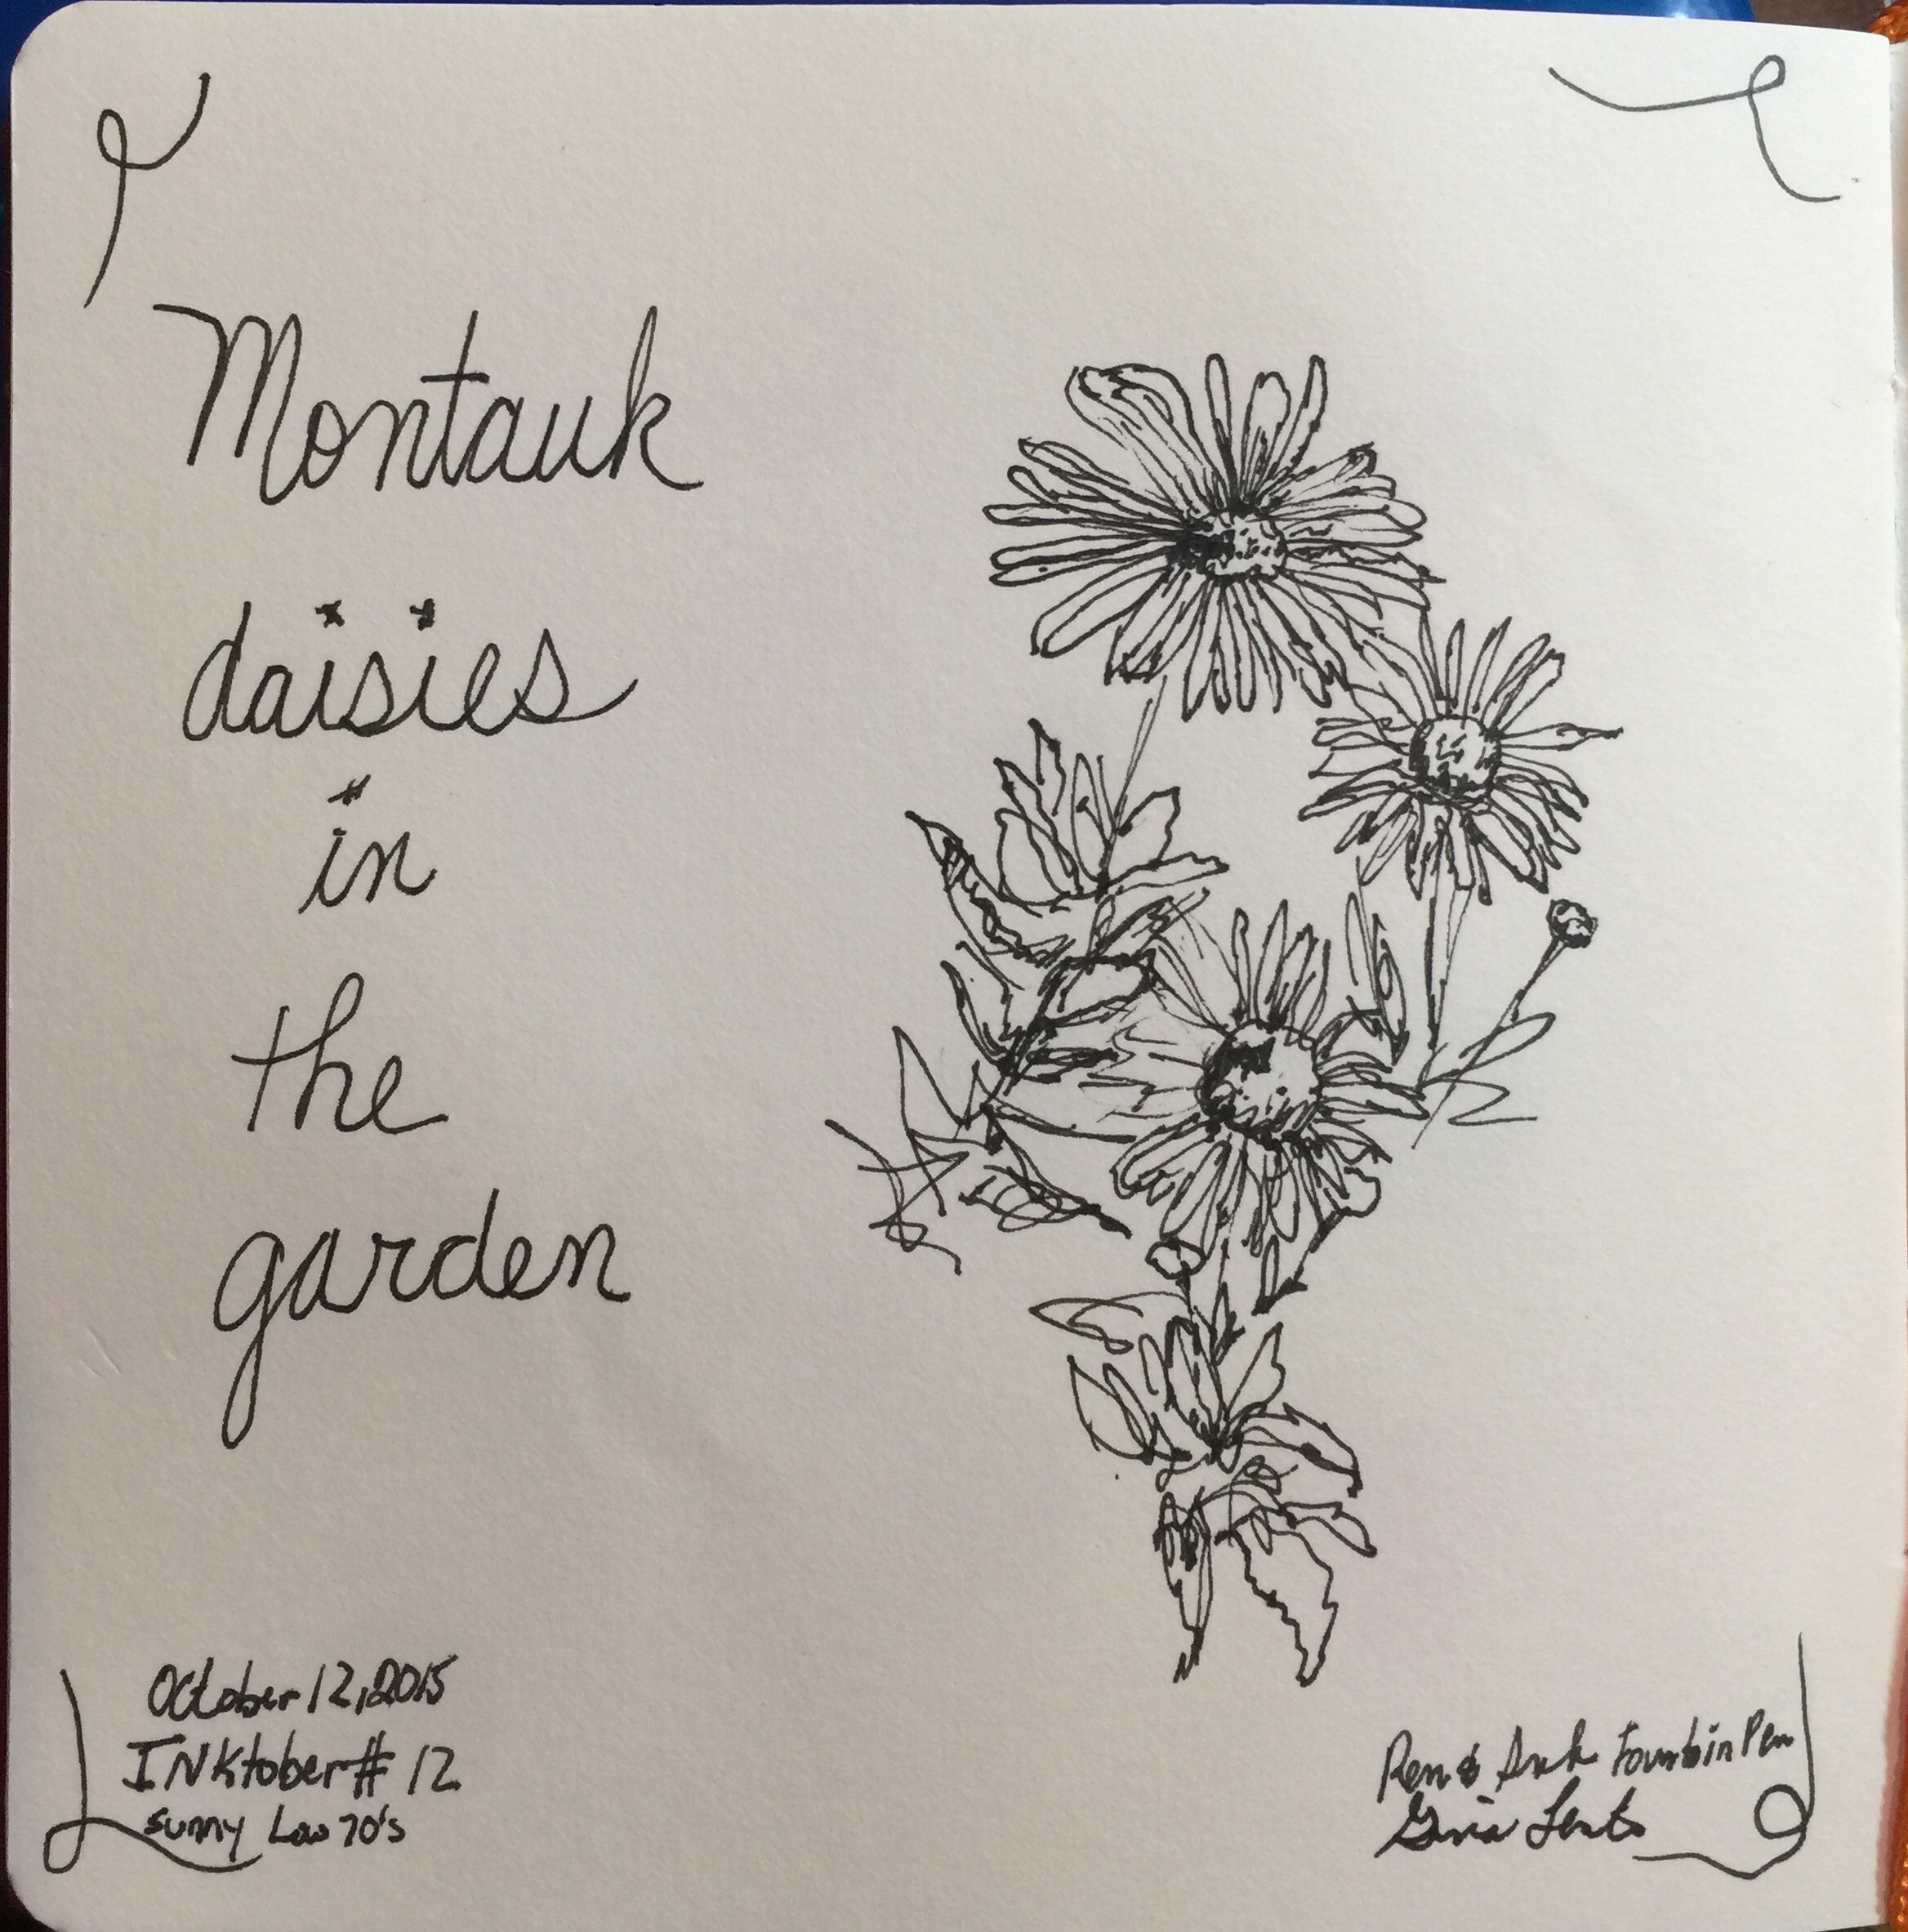 Montauk
daisies
in
the
garden
October 12, 2015
INKtober # 12
Sunny Low 70's
Pen & Ink Fountain Pen
Gina